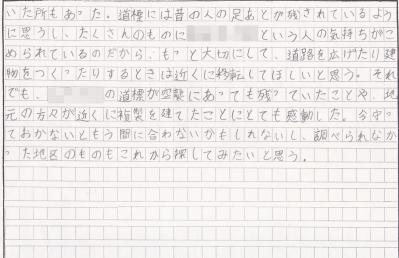 いた所もあった。道標には昔の人の足あとが残されているよう
に思うし、たくさんのものに という人の気持ちがこ
められているのだから、もっと大切にして、道路を広げたり建
物をつくったりするときは近くに移転してほしいと思う。それ
でも、 の道標が空襲にあっても残っていたことや、地
元の方々が近くに複製を建てたことにとても感動した。今守っ
ておかないともう間に合わないかもしれないし、調べられなか
った地区のものもこれから探してみたいと思う。